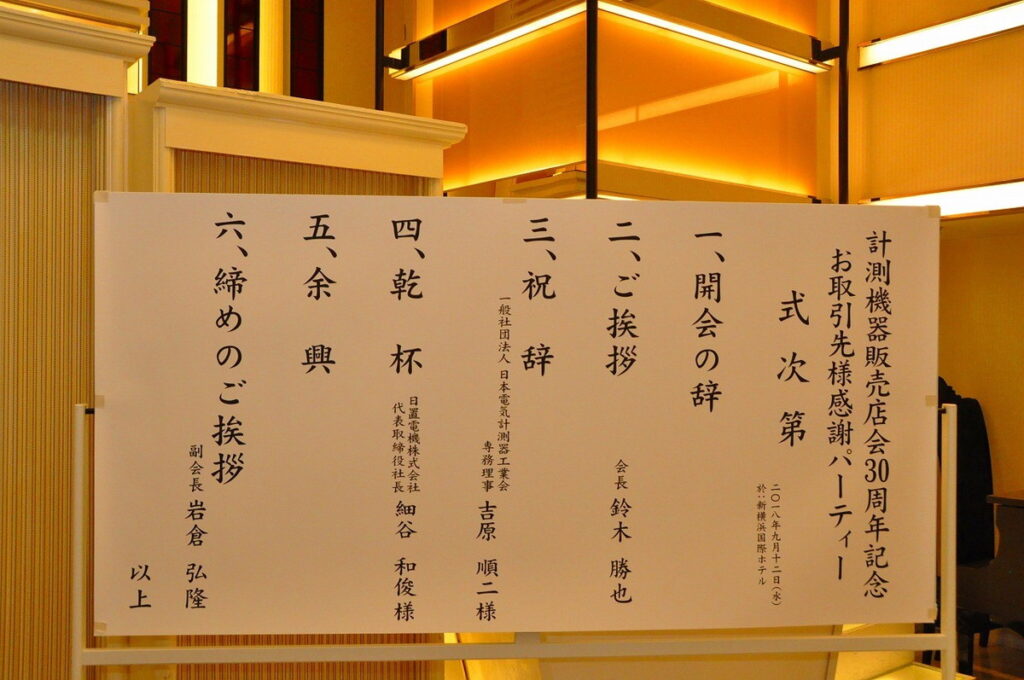 計測機器販売店会30周年記念
お取引先様感謝パーティー
式次第
二〇一八年九月十二日(水)
於:新横浜国際ホテル
一、開会の辞
二、ご挨拶
会長 鈴木 勝也
三、祝辞
一般社団法人 日本電気計測器工業会
専務理事 吉原 順二様
四、乾杯
日置電機株式会社
代表取締役社長 細谷 和俊様
五、余興
六、締めのご挨拶
副会長 岩倉 弘隆
以上